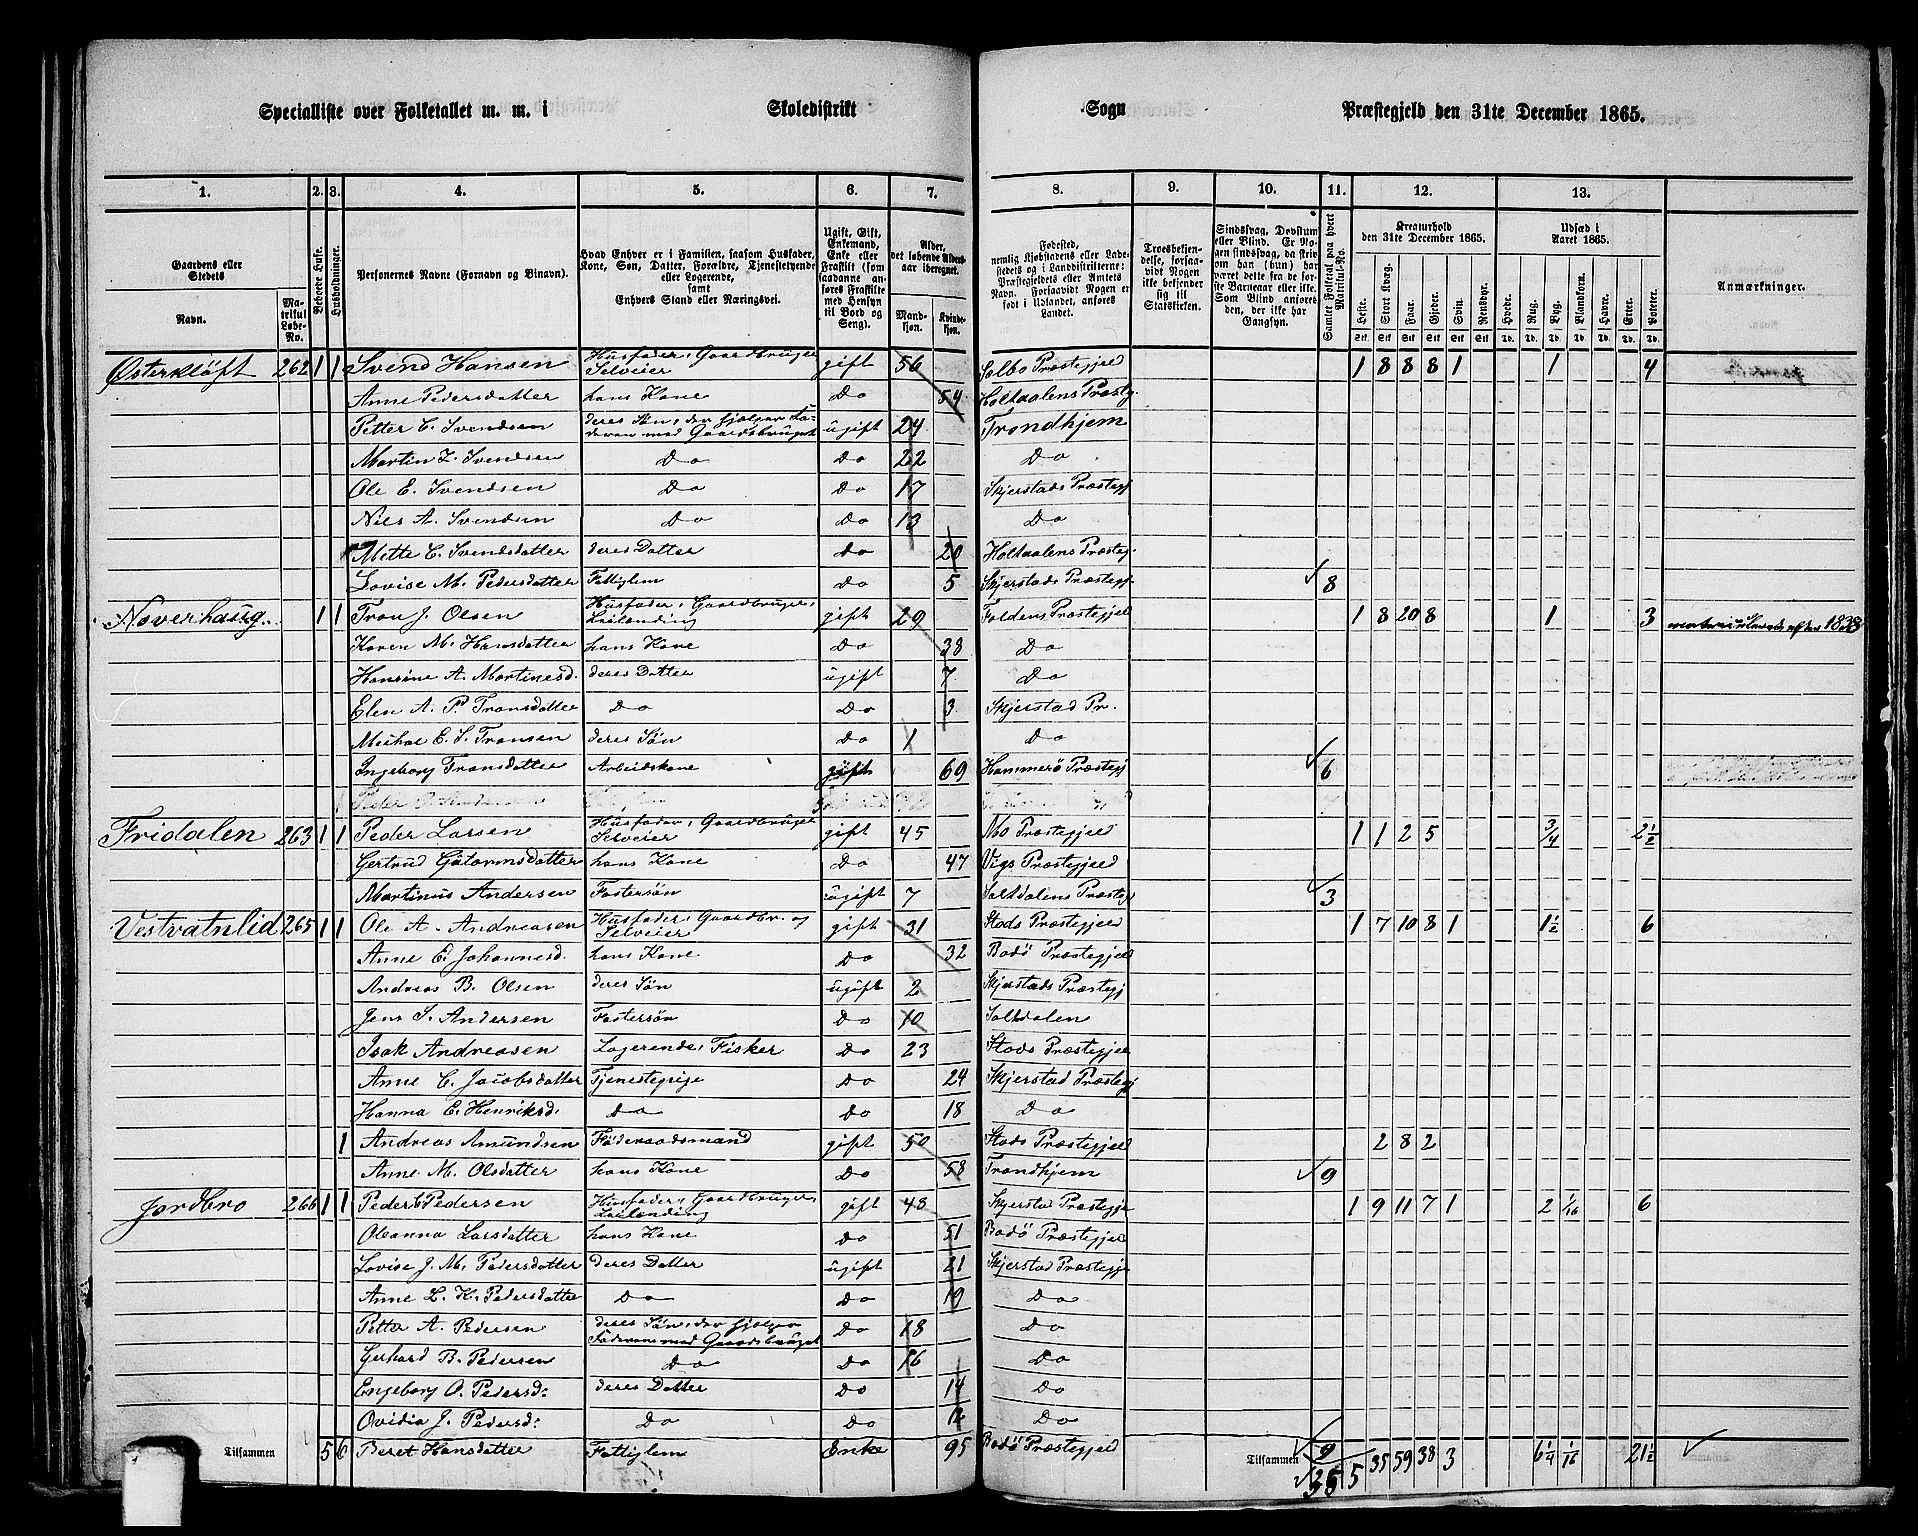 Specialliste over Folketallet m. m. i Skoledistrikt Sogn Præstegjeld den 31te December 1865.
1. 2. 3. 4. 5. 6. 7. 8. 9. 10. 11. 12. 13.
Gaardens eller Stedets Navn.
Matrikul Løbe-No.
Beboede Huse.
Husholdninger.
Personernes Navne (Fornavn og Binavn).
Hvad Enhver er i Familien, saasom Husfader, Kone, Søn, Datter, Forældre, Tjenestetyende eller Logerende, samt Enhvers Stand eller Næringsvei.
Ugift, Gift, Enkemand, Enke eller Fraskilt (som saadanne anføres Fraskilte med Hensyn til Bord og Seng).
Alder, det løbende Alders-aar iberegnet.
Mandkjøn. Kvindekjøn.
Fødested, nemlig Kjøbstadens eller Ladestedets og i Landdistrikterne: Præstegjeldets eller Amtets Navn. Forsaavidt Nogen er født i Udlandet, anføres Landet.
Troesbekjendelse, forsaavidt Nogen ikke bekjender sig til Statskirken.
Sindssvag, Døvstum eller Blind. Er Nogen sindssvag, da skrives om han (hun) har været dette fra de første Barneaar eller ikke. Som Blind anføres den, der ikke har Gangsyn.
Samlet Folketal paa hvert Matrikul-No.
Kreaturhold den 31te December 1865.
Heste. Stort Kvæg. Faar. Gjeder. Svin. Rensdyr.
Udsæd i Aaret 1865.
Hvede. Rug. Byg. Blandkorn. Havre. Erter. Poteter.
Anmærkninger.
Østerkløft 262 1 1 Svend Hansen Husfader, Gaardbruger Selveier gift 56 Sælbo Præstegjeld 1 8 8 8 1 1 4
Anne Pedersdatter hans Kone Do 54 Holtaalens Præstg.
Petter C. Svendsen deres Søn, der hjælper Faderen med Gaardsbruget ugift 24 Trondhjem
Martin Z. Svendsen Do Do 22 Do
Ole E. Svendsen Do Do 17 Skjerstads Præstegj
Nils A. Svendsen Do Do 13 Do
Mette C. Svendsdatter deres Datter Do 20 Holtaalens Præsteg.
Lovise M. Pedersdatter Fattiglem Do 5 Skjerstads Præstegj. 8
Næverhaug 1 1 Tron J. Olsen Husfader, Gaardbruger, Leilænding gift 29 Foldens Præstegjeld 1 8 20 8 1 3
Karen M. Hansdatter hans Kone Do 38 Do
Hansine A. Martinesd. deres Datter ugift 7 Do
Elen A. P. Tronsdatter Do Do 3 Skjerstad Pr.
Michal E. S. Tronsen deres Søn Do 1 Do
Ingeborg Tronsdatter Arbeidskone gift 69 Hammerø Præstegj 6
Fridalen 263 1 1 Peder Larsen Husfader, Gaardbruger Selveier gift 45 Mo Præstegjeld 1 1 2 5 3/4 2 1/2
Gertrud Gutormsdatter hans Kone Do 47 Vigs Præstegjeld
Martinus Andersen Fostersøn ugift 7 Saltdalens Præstegj 3
Vestvatnlid 265 1 1 Ole A. Andreasen Husfader, Gaardbr. og Selveier gift 31 Stods Præstegjeld 1 7 10 8 1 1 1/2 6
Anne E. Johannesd. hans Kone Do 32 Bodø Præstegjeld
Andreas B. Olsen deres Søn ugift 2 Skjerstads Præstegj
Jens S. Andersen Fostersøn Do 10 Saltdalen
Isak Andreasen Logerende, Fisker Do 23 Stods Præstegjel
Anne C. Jacobsdatter Tjenestepige Do 24 Skjerstad Præstegj
Hanna E. Henriksd. Do Do 18 Do
1 Andreas Amundsen Føderaadsmand gift 50 Stods Præstegjeld 2 8 2
Anne M. Olsdatter hans Kone Do 58 Trondhjem 9
Jordbro 266 1 1 Peder Pedersen Husfader, Gaardbruger, Leilænding gift 48 Skjerstad Præstegje 1 9 11 7 1 2 1/16 6
Oleanna Larsdatter hans Kone Do 51 Bodø Præstegjel
Lovise J. M. Pedersdatter Deres Datter ugift 21 Skjerstad Præstegje
Anne L. K. Pedersdatter Do Do 19 Do
Petter A. Pedersen deres Søn, der hjelper Faderen med Gaardsbruget Do 18 Do
Gerhard B. Pedersen Do Do 16 Do
Engeborg O. Pedersd: deres Datter Do 14 Do
Ovidia J. Pedersd: Do Do 12 Do
Tilsammen 5 6 Beret Hansdatter Fattiglem Enke 95 Bodø Præstegjeld 9
Tilsammen 35 5 35 59 38 3 6 1/4 1/16 21 1/2